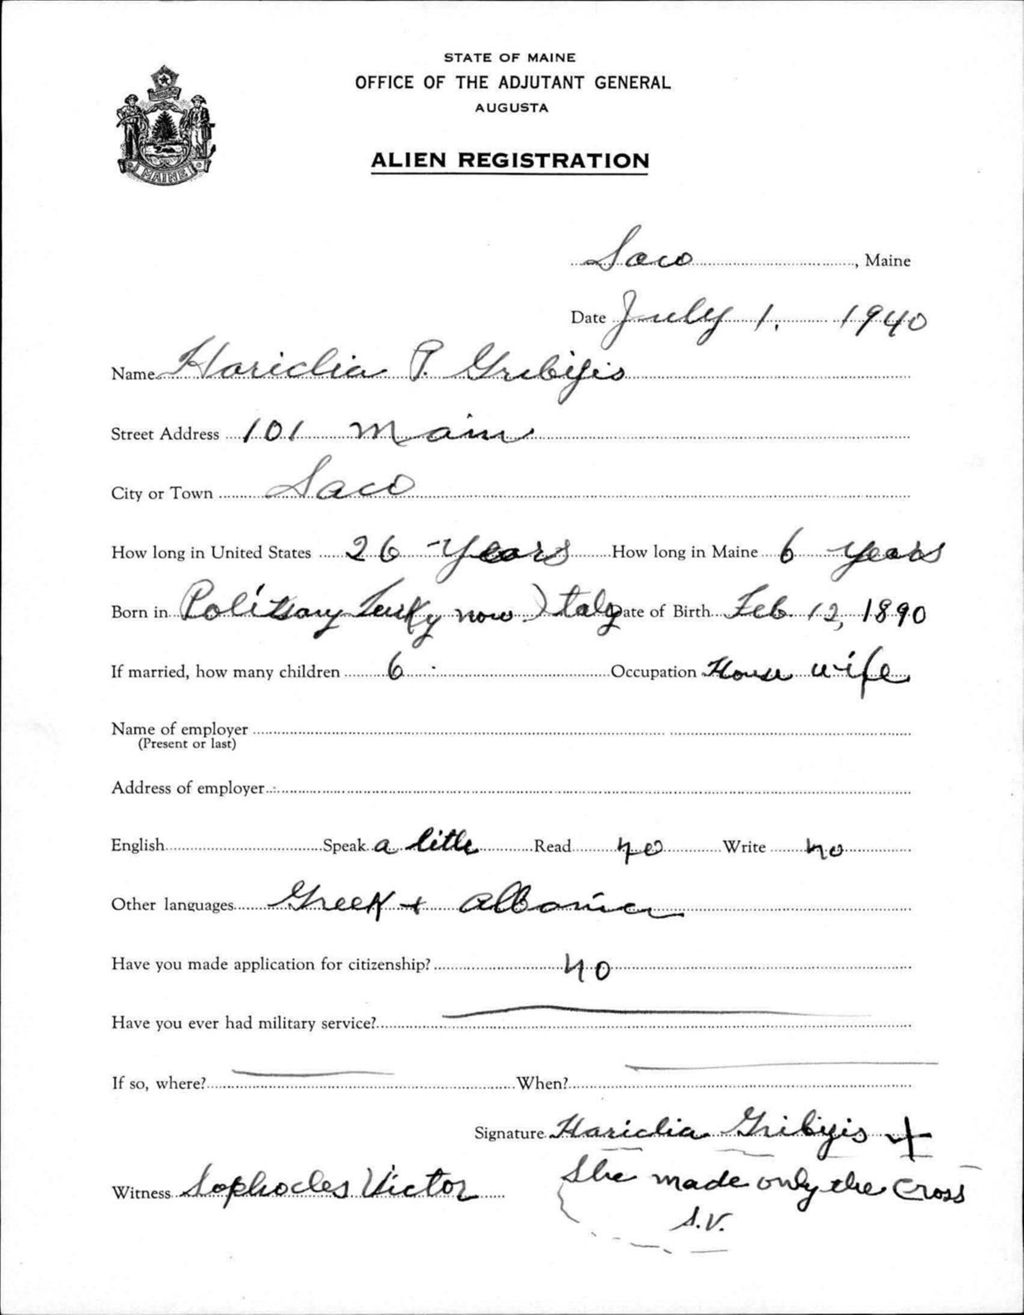 STATE OF MAINE
OFFICE OF THE ADJUTANT GENERAL
AUGUSTA
ALIEN REGISTRATION
MAINE
Saco, Maine
Date July 1, 1940
Name Hariclia P. Gribizis
Street Address 101 Main
City or Town Saco
How long in United States 26 years How long in Maine 6 years
Born in Turky now Italy Date of Birth Feb 12, 1890
If married, how many children 6 Occupation House wife
Name of employer
(Present or last)
Address of employer
English Speak a little Read no Write no
Other languages Greek + Albanian
Have you made application for citizenship? no
Have you ever had military service?
If so, where? When?
Signature Hariclia Gribizis +
Witness Sophocles Victor She made only the Cross
S.V.